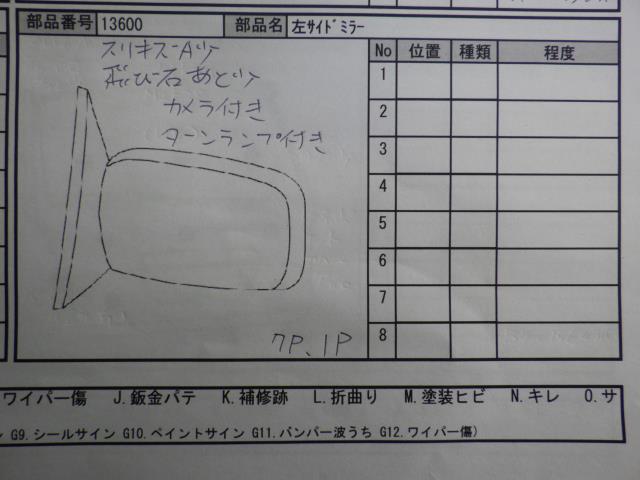 部品番号 13600 部品名 左ｻｲﾄﾞﾐﾗｰ
スリキズ-A少
飛び石あと少
カメラ付き
ターンランプ付き
No 位置 種類 程度
1
2
3
4
5
6
7
8
7P、1P
ワイパー傷 J.鈑金パテ K.補修跡 L.折曲り M.塗装ヒビ N.キレ O.サ
ン G9.シールサイン G10.ペイントサイン G11.バンパー波うち G12.ワイパー傷)